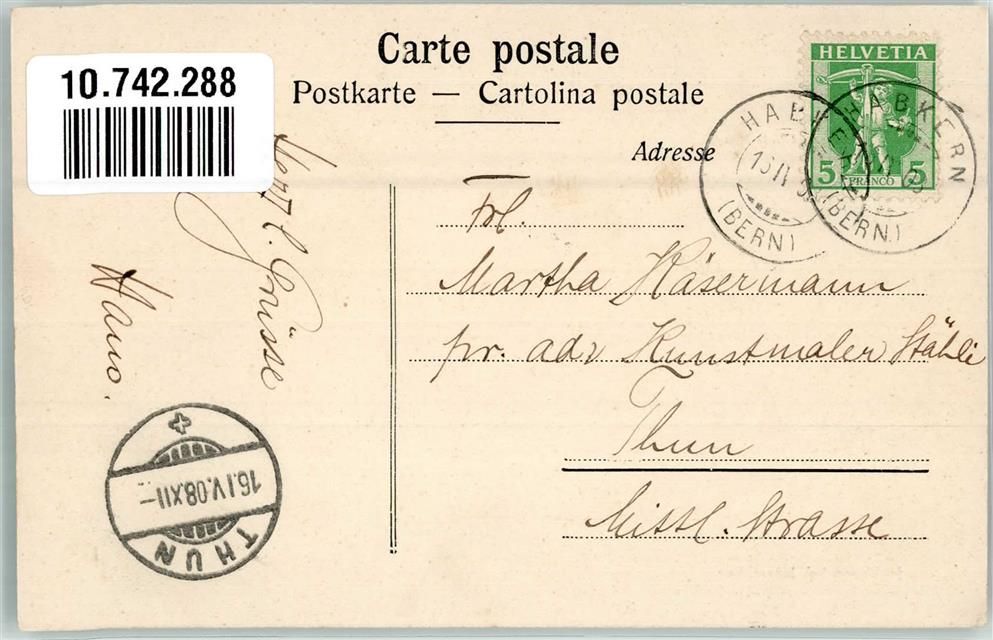 Carte postale
Postkarte — Cartolina postale
Adresse
10.742.288
HELVETIA
5 FRANCO 5
HABKERN
(BERN)
HABKERN
(BERN)
Frl.
Martha Käsermann
pr. adr Kunstmaler Stähli
Thun
Mittl. Strasse
Herzl. Grüsse
Hans.
16.IV.08.XII-
THUN